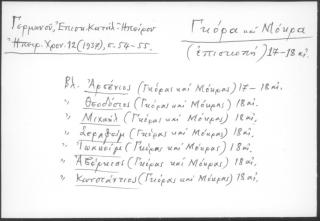 Γερμανοῦ, Ἐπισκ. Καταλ. Ἠπείρου
Ἠπειρ. Χρον. 12 (1937), σ. 54-55.
Γκόρα καὶ Μόκρα
(ἐπισκοπή) 17-18 αἰ.
Βλ. Ἀρσένιος (Γκόρας καὶ Μόκρας) 17-18 αἰ.
" Θεοδόσιος (Γκόρας καὶ Μόκρας) 18 αἰ.
" Μιχαὴλ (Γκόρας καὶ Μόκρας) 18 αἰ.
" Σεραφεὶμ (Γκόρας καὶ Μόκρας) 18 αἰ.
" Ἰωακεὶμ (Γκόρας καὶ Μόκρας) 18 αἰ.
" (Γκόρας καὶ Μόκρας) 18 αἰ.
" Κωνστάντιος (Γκόρας καὶ Μόκρας) 18 αἰ.